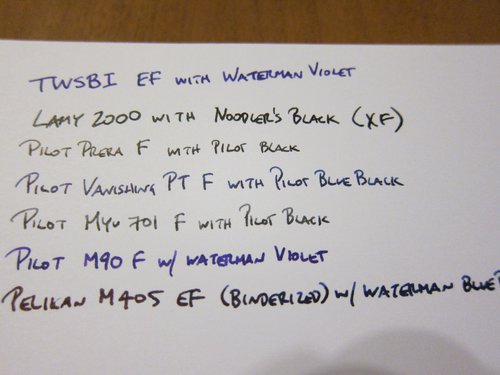 TWSBI EF WITH WATERMAN VIOLET
LAMY 2000 WITH NOODLER'S BLACK (XF)
PILOT PRERA F WITH PILOT BLACK
PILOT VANISHING PT F WITH PILOT BLUE BLACK
PILOT MYU 701 F WITH PILOT BLACK
PILOT M90 F W/ WATERMAN VIOLET
PELIKAN M405 EF (BINDERIZED) W/ WATERMAN BLUE